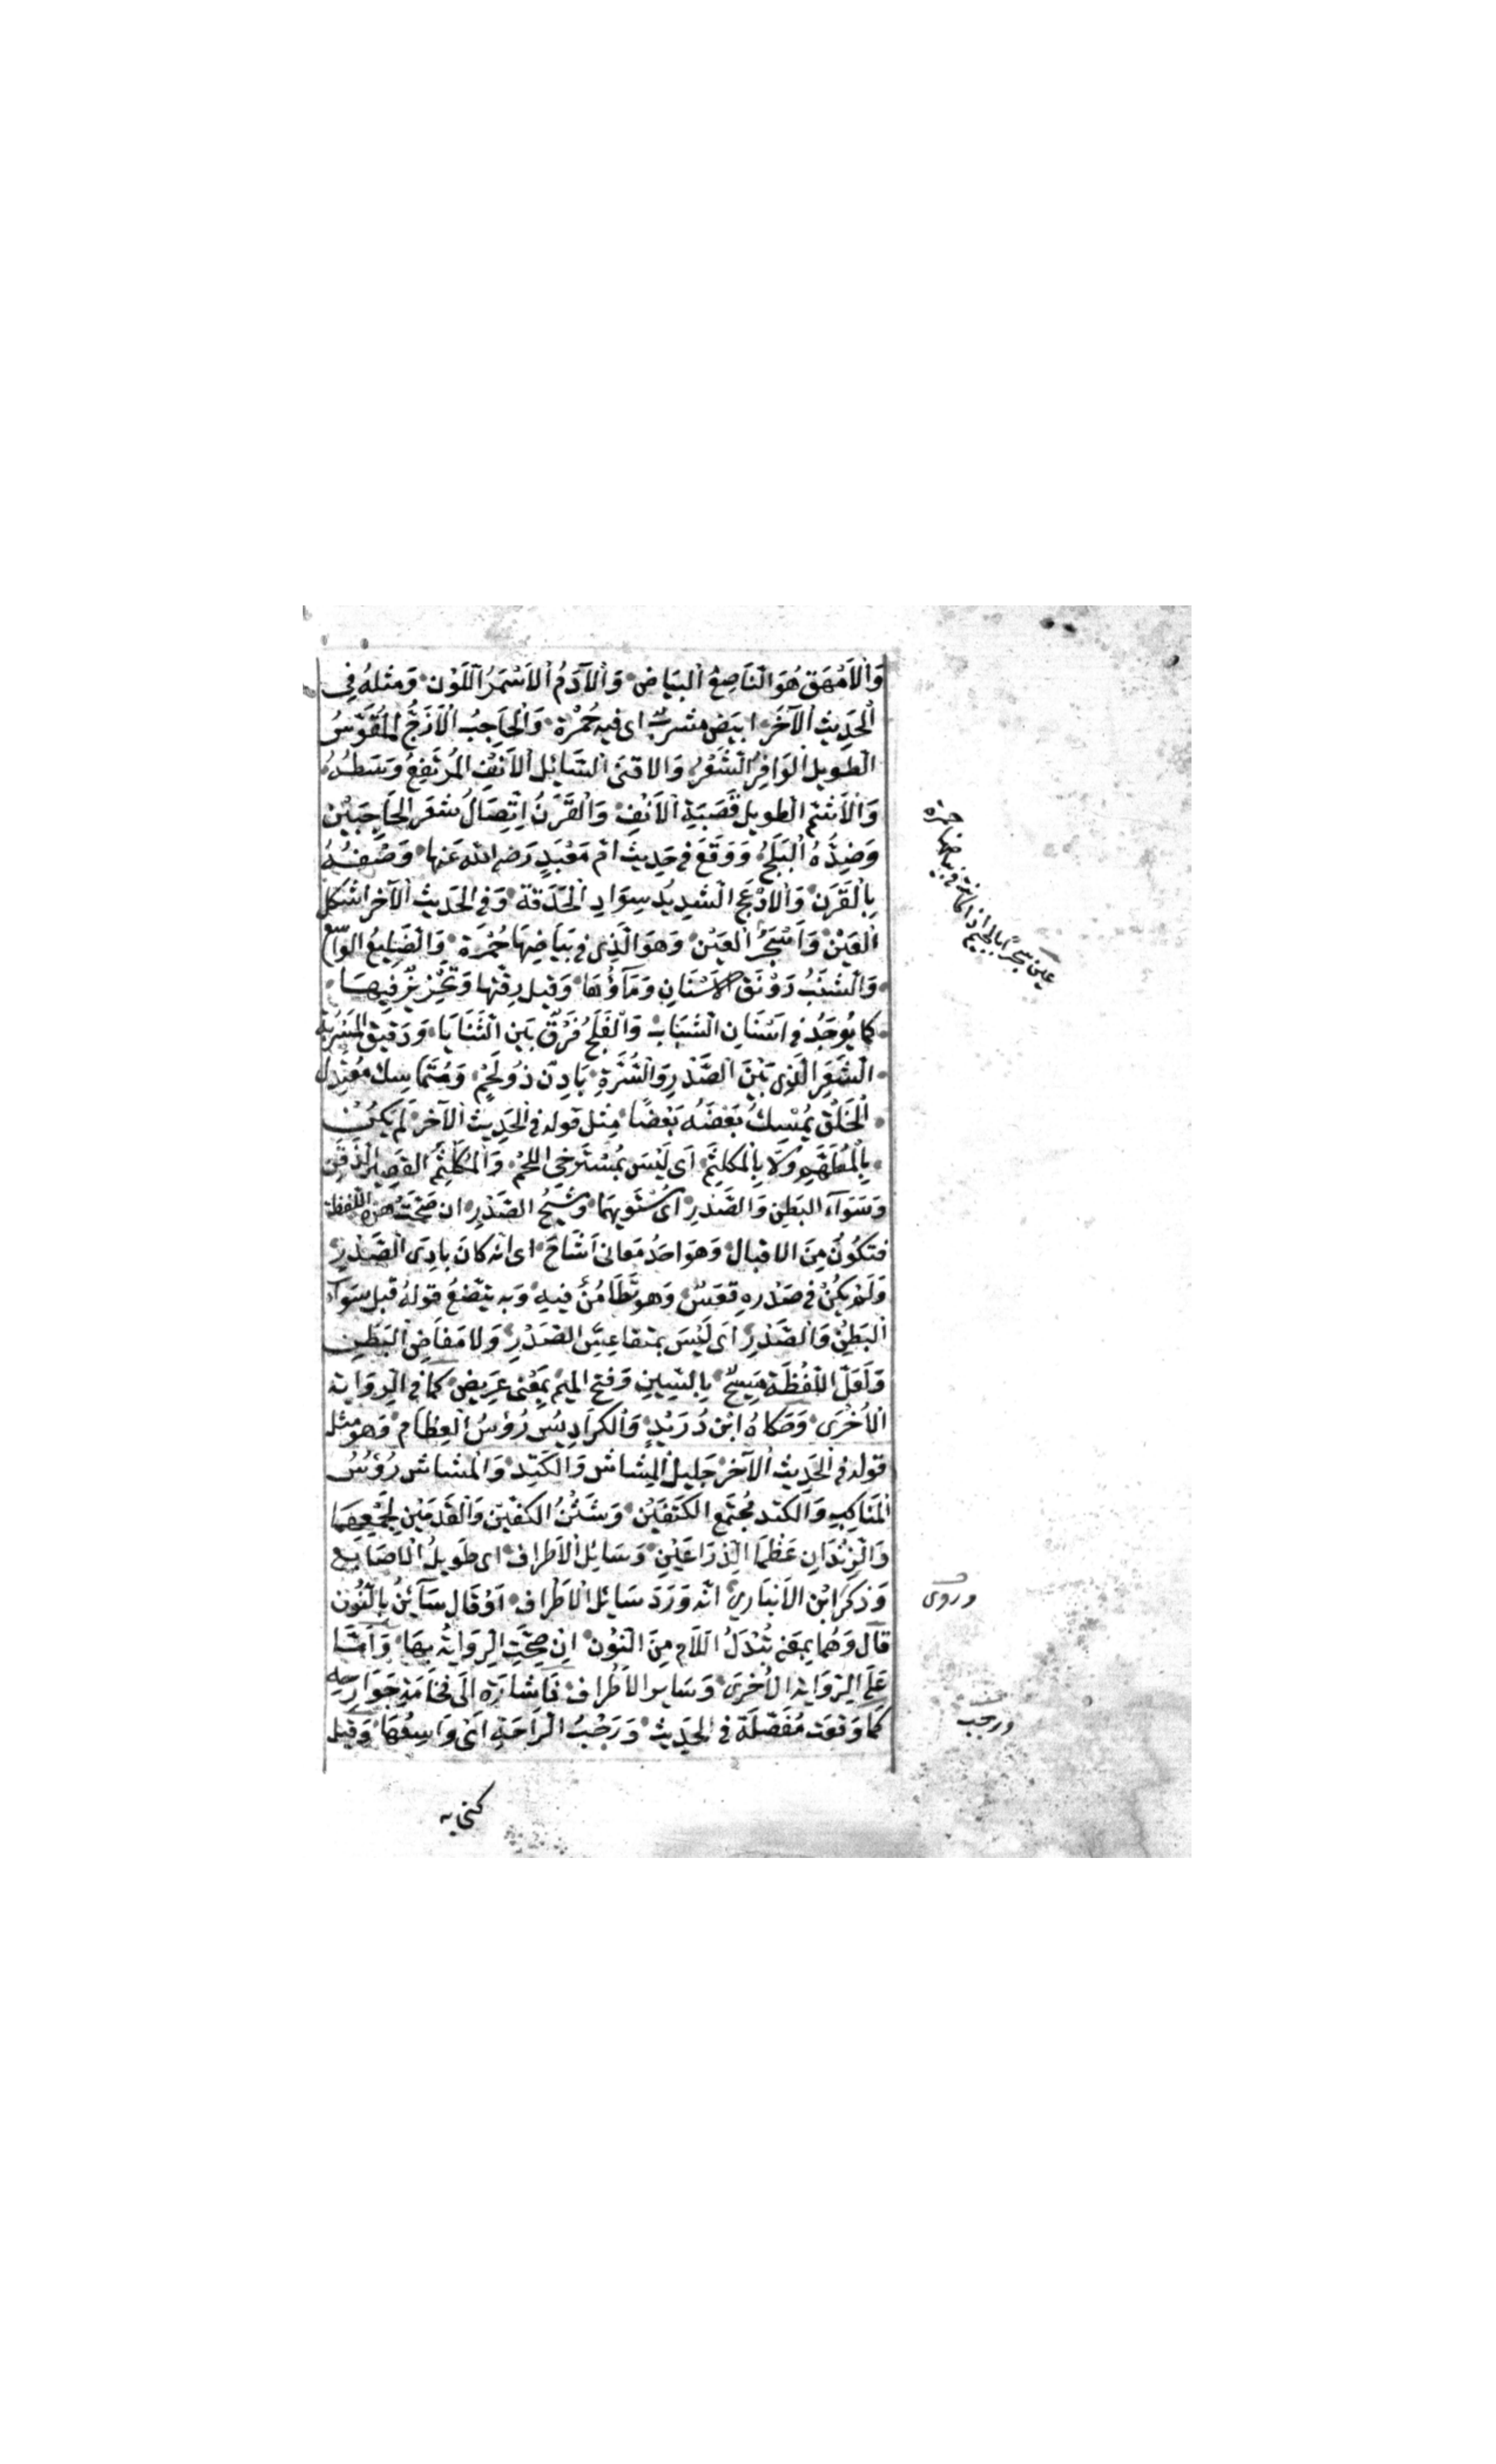 وَالْاَمْهَق هُوَ النَّاصِعُ الْبَيَاضِ وَالْآدَمُ الْاَسْمَرُ اللَّوْن وَمثلهُ فِى
الْحَدِيثِ الْآخَرِ ابيَض مشربٌ اى فيه حُمْرَة وَالْحَاجِبُ الْاَزَجُّ الْمُقَوَّسُ
الطَويل الْوَافِرُ الشَعْرِ وَالاقنَى السَّائِل الْاَنْفِ المُرْتَفِعُ وَسَطُهُ
وَالْاَشَمّ الطَويل قَصَبَةِ الْاَنْفِ وَالْقَرَنُ اِتِّصَالُ شَعَرِ الْحَاجِبَيْنِ
وَضِدُّهُ الْبَلَجُ وَوَقَعَ فى حَدِيث ام مَعْبَدٍ رَضى الله عَنها وَصْفُهُ
بِالْقَرَنِ وَالادْعَج الشديدُ سوَادِ الْحَدَقَة وَفى الْحَدِيث الْآخَر اشكل
الْعَيْن وَاَسْجَرُ الْعَيْن وَهوَ الَّذِى فى بَيَاضِهَا حُمْرَة وَالضَّلِيعُ الوَاسع
وَالشَنَبُ رَوْنَق الاَسْنَانِ وَمَآؤُهَا وَقيل رِقّتها وَتَحْزِيزٌ فِيهَا
كما يُوجَدُ فى اَسْنَانِ الشَبَاب وَالْفَلَجُ فَرْقٌ بَيْن الثَّنَايَا وَدَقيق المَسْرُبَة
الشَعَرِ الَّذِى بَيْنَ الصَّدْرِ وَالسُّرَّةِ بَادِنٌ ذُو لَحْمٍ وَمُتَمَاسِك مُعْتَدِلُ
الْخَلْقِ يُمْسِكُ بَعْضُهُ بَعْضًا مِثل قوله فى الْحَدِيث الْآخر لَم يَكُنْ
بِالْمُطَهَّمِ وَلَا بِالْمُكَلْثَمِ اَى لَيْسَ بمُسْتَرخى اللحْمِ وَالْمُكَلْثَم القصِير الذقَن
وَسَوَآء البَطن وَالصَدْرِ اى مُسْتَويهمَا وَمُشيحُ الصَدْرِ ان صَحَّتْ هذه اللفظة
فَتَكُونُ مِنَ الاقبال وَهوَ احدُ مَعانى اَشَاحَ اى انه كانَ بادِىَ الصَدْرِ
وَلَمْ يكُنْ فى صَدْرِهِ قعَسٌ وَهو تَطَامُنٌ فيهِ وَبه يتضحُ قولهُ قبل سَوَآء
الْبَطْنِ وَالصَدْرِ اَى لَيْسَ بمتقَاعِسِ الصَدْرِ وَلا مَفَاضِ الْبَطْنِ
وَلَعَلّ اللفْظَة مَسيحٌ بِالسّينِ وَفتح الميم بمَعْنى عَرِيض كَمَا فى الرِوَايَة
الْاُخْرَى وَحَكاهُ ابْن دُرَيْدٍ وَالكرَادِيسُ رُؤسُ الْعِظَامِ وَهوَ مثل
قوله فى الْحَدِيث الْآخر جَليل الْمُشَاش وَالكَتَد وَالْمشاش رُؤسُ
الْمَنَاكِبِ وَالْكتد مُجْتَمَع الكَتفَيْن وَشَثْنُ الكفّيْن وَالْقَدمَيْن لَحِيْمهمَا
وَالزَّنْدَانِ عَظْمَا الذِرَاعَيْنِ وَسَائِل الْاَطْرَافِ اى طَوِيلُ الْاصَابِع
وَذكرَ ابْن الْاَنبَارىِّ انّه وَرَدَ سَائل الْاَطْرَاف اَوْ قَال سَآئِنُ بِالنُّون
قال وَهُمَا بِمَعنى تُبْدَلُ اللَّام مِنَ النُّون اِن صَحَّتِ الرِوَايَةُ بِهَا وَاَمَّا
عَلَى الرِوَايَة الْاُخْرَى وَسَاير الْاَطْرَاف فَاشارَة الى فخَامَة جَوَارحه
كَمَا وَقعَت مُفَصّلَة فى الْحَدِيث وَرَحْبُ الرَاحَة اَى وَاسِعُهَا وَقيل
كنى به
وروى
ورحب